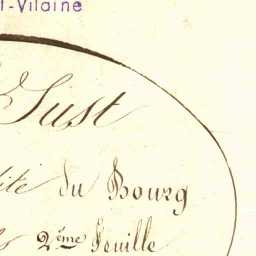 t-Vilaine
Just
ite du Bourg
2ème feuille